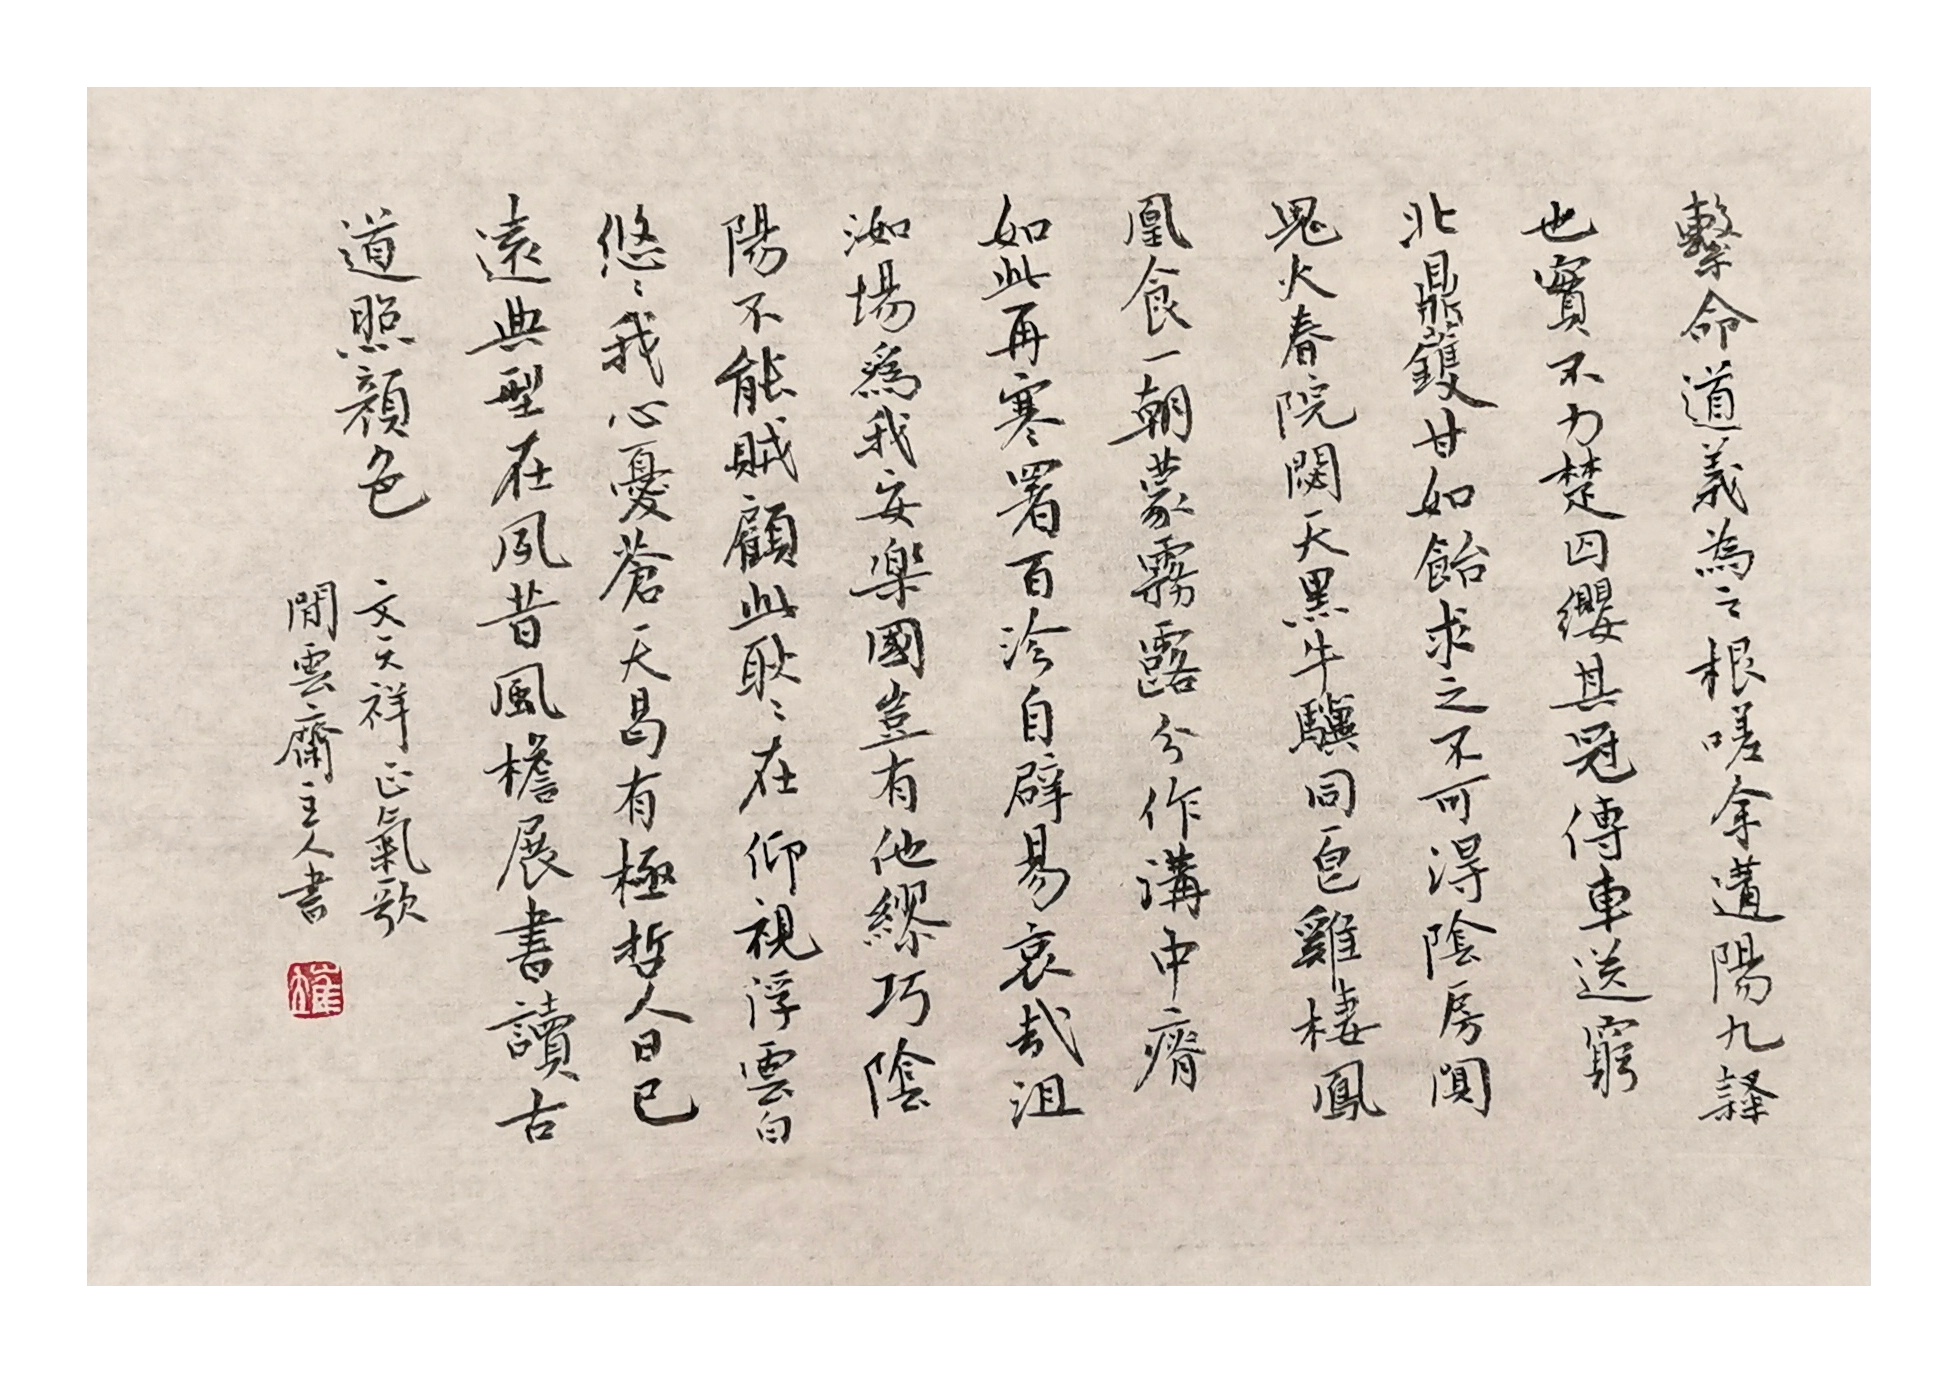 繫命道義為之根嗟余遘陽九隸
也實不力楚囚纓其冠傳車送窮
北鼎鑊甘如飴求之不可得陰房闃
鬼火春院閟天黑牛驥同皂雞棲鳳
凰食一朝蒙霧露分作溝中瘠
如此再寒署百沴自辟易哀哉沮
洳場為我安樂國豈有他繆巧陰
陽不能賊顧此耿〻在仰視浮雲白
悠〻我心憂蒼天曷有極哲人日已
遠典型在夙昔風檐展書讀古
道照顏色
文天祥正氣歌
閒雲齋主人書